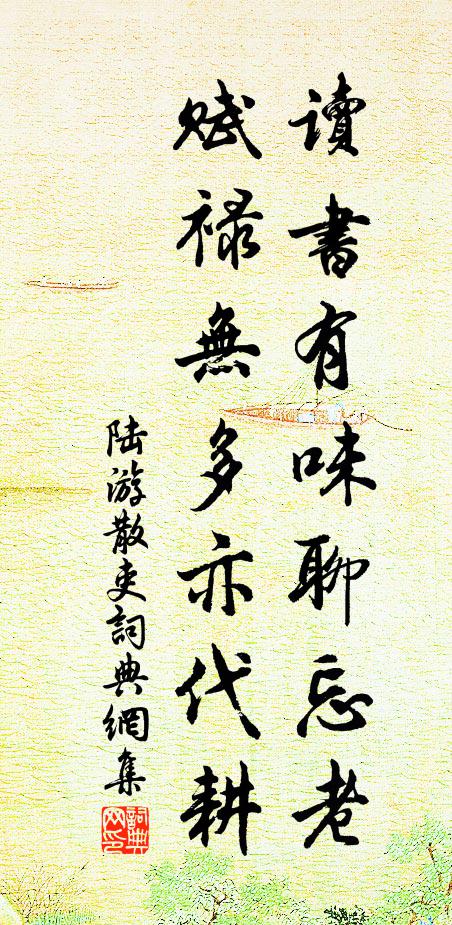 讀書有味聊忘老
賦祿無多亦代耕
陸游散吏詞典網集
詞典网印